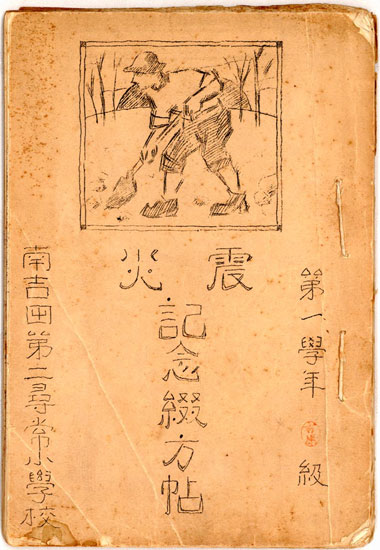 第一學年 級
震災
記念綴方帖
南吉田第二尋常小學校